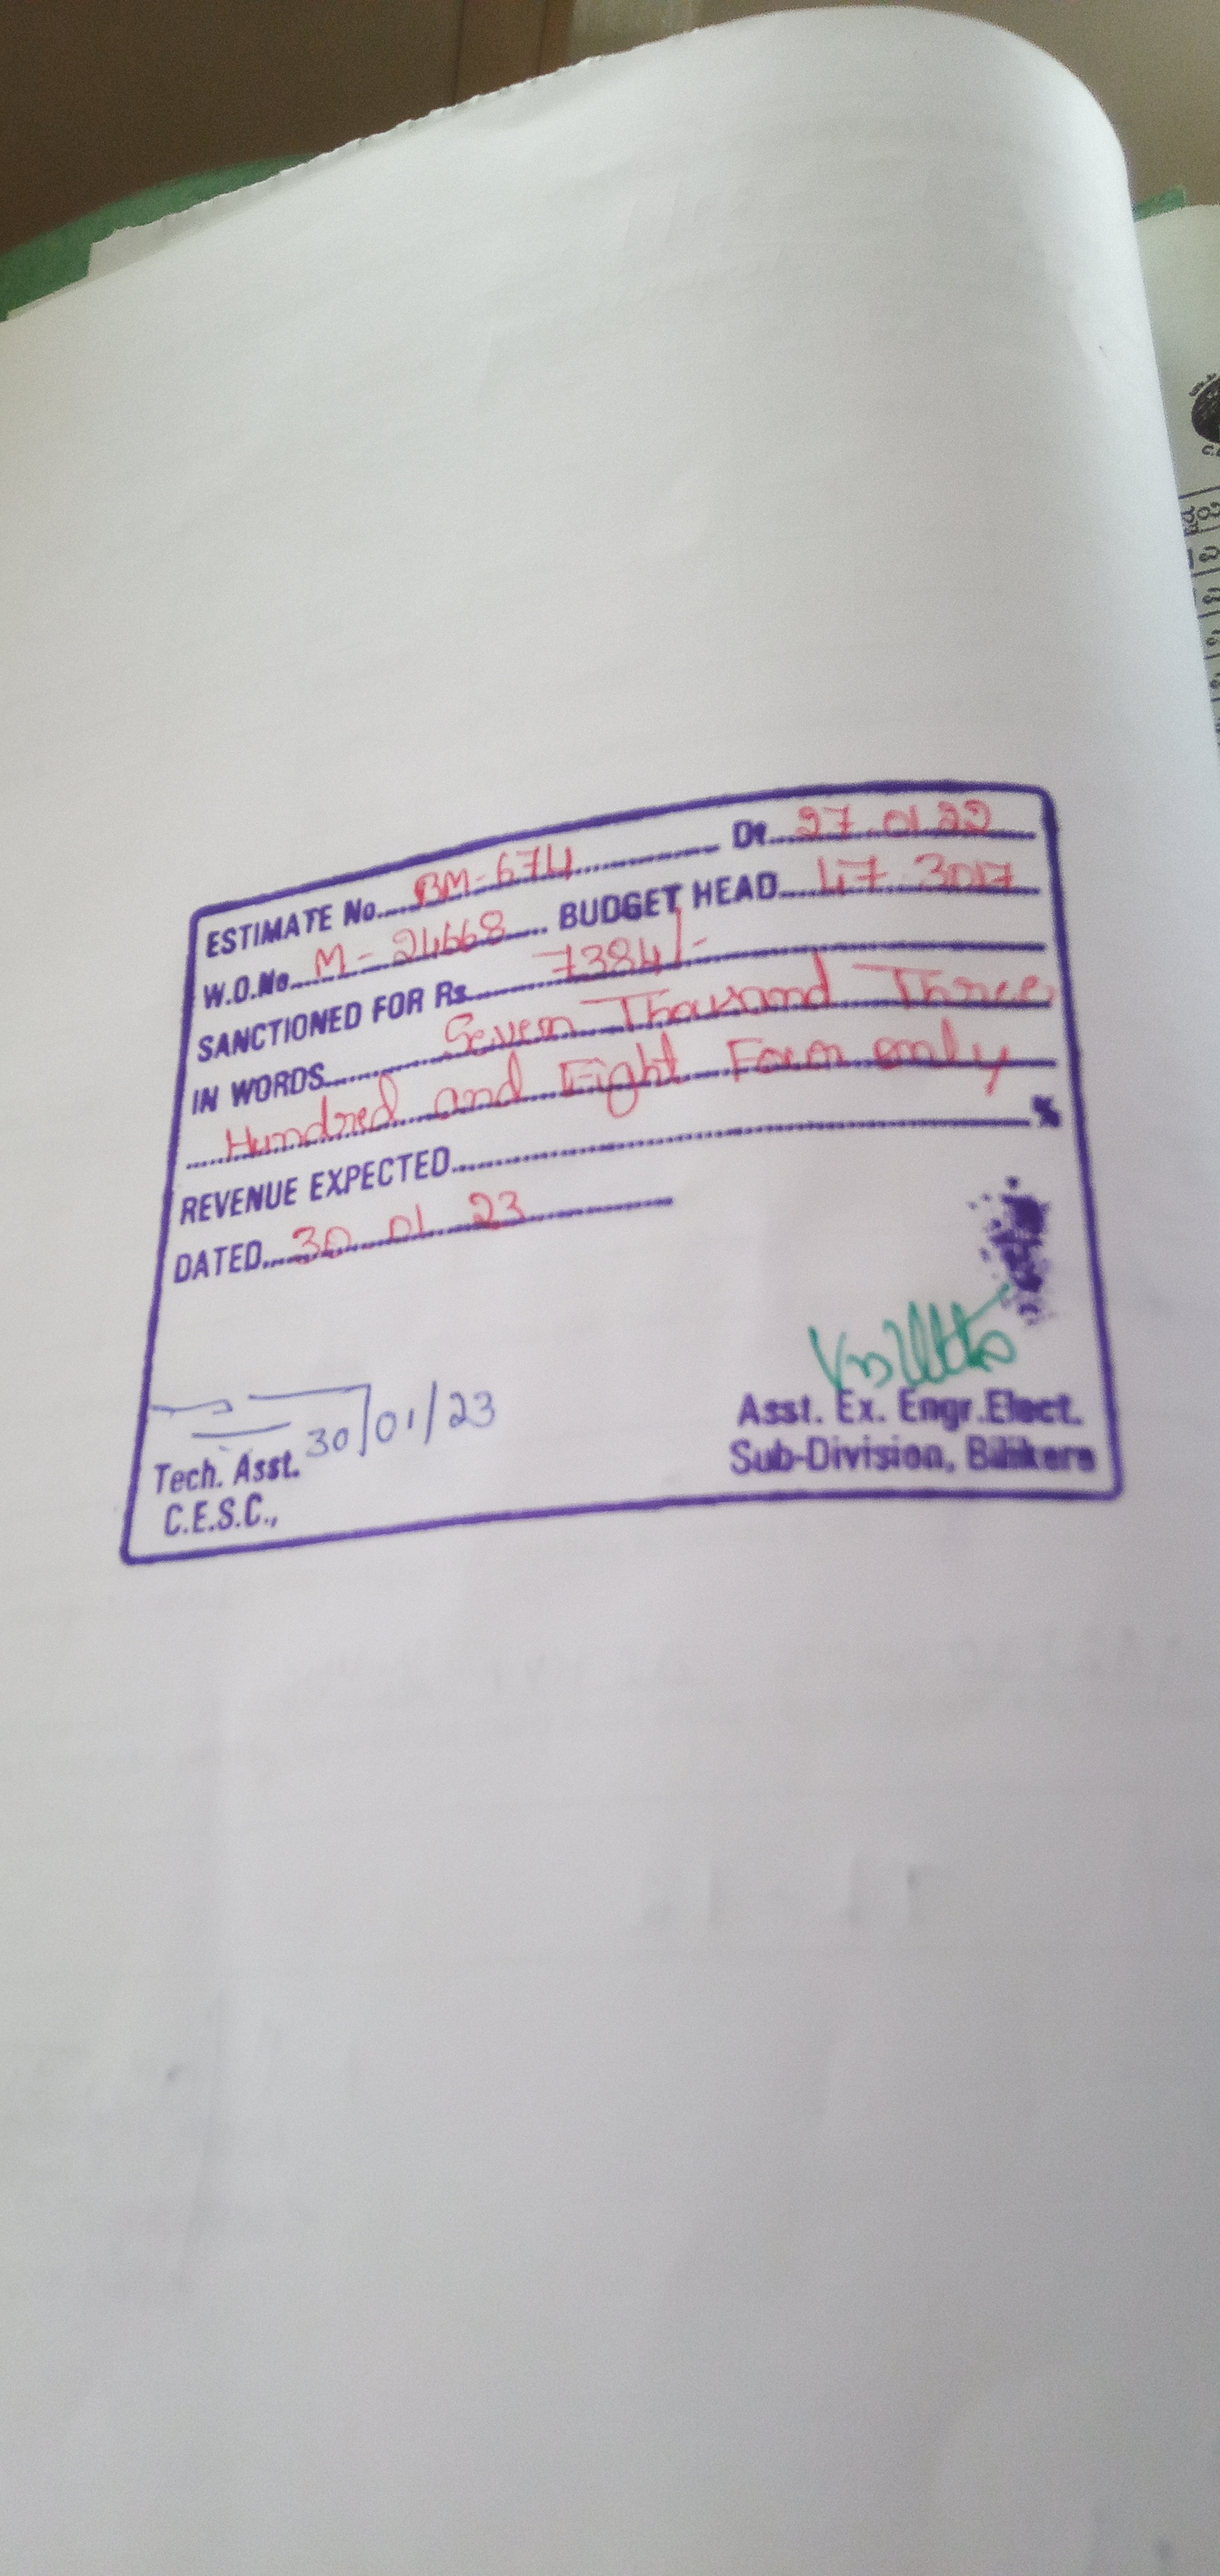 ESTIMATE No. BM-674 Dt. 27.01.22
W.O.No. M-24668 BUDGET HEAD 47.3017
SANCTIONED FOR Rs. 7384/-
IN WORDS Seven Thousand Three
Hundred and Eight Four only
REVENUE EXPECTED %
DATED 30 01 23
30/01/23
Tech. Asst.
C.E.S.C.,
Asst. Ex. Engr.Elect.
Sub-Division, Bilikere